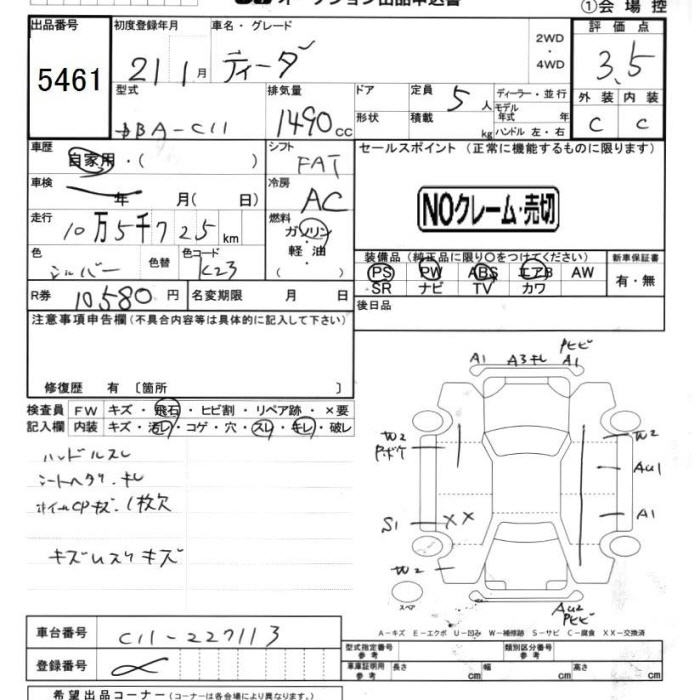 オークション出品申込書
①会場控
出品番号 初度登録年月 車名・グレード 2WD・4WD 評価点
5461 21 1月 ティーダ 3.5
型式 排気量 ドア 定員 5人 ディーラー・並行 外装 内装
DBA-C11 1490cc 形状 積載 kg モデル年式 年 ハンドル 左・右 C C
車歴 自家用・( ) シフト FAT セールスポイント (正常に機能するものに限ります)
車検 年 月( 日) 冷房 AC
NOクレーム・売切
走行 10万5千725km 燃料 ガソリン 軽・油 ( )
色 シルバー 色替 色コード K23
装備品 (純正品に限り○をつけてください) 新車保証書
PS PW ABS エアB AW 有・無
SR ナビ TV カワ
R券 10580円 名変期限 月 日 後日品
注意事項申告欄 (不具合内容等は具体的に記入して下さい)
修復歴 有 〔箇所 〕
検査員 FW キズ・飛石・ヒビ割・リペア跡・×要
記入欄 内装 キズ・汚レ・コゲ・穴・スレ・キレ・破レ
ハンドルスレ
シートヘタリ・キレ
ホイールCPキズ・1枚欠
キズUスリキズ
A1 A3キレ A1 Pヒビ
W2 Pボケ W2
AU1
S1 XX A1
W2
スペア AU2 Pヒビ
A-キズ E-エクボ U-凹み W-補修跡 S-サビ C-腐食 XX-交換済
車台番号 C11-227113
型式指定番号 参考 類別区分番号 参考
登録番号
車庫証明用 参考 長さ cm 幅 cm 高さ cm
希望出品コーナー (コーナーは各会場により異なります。)